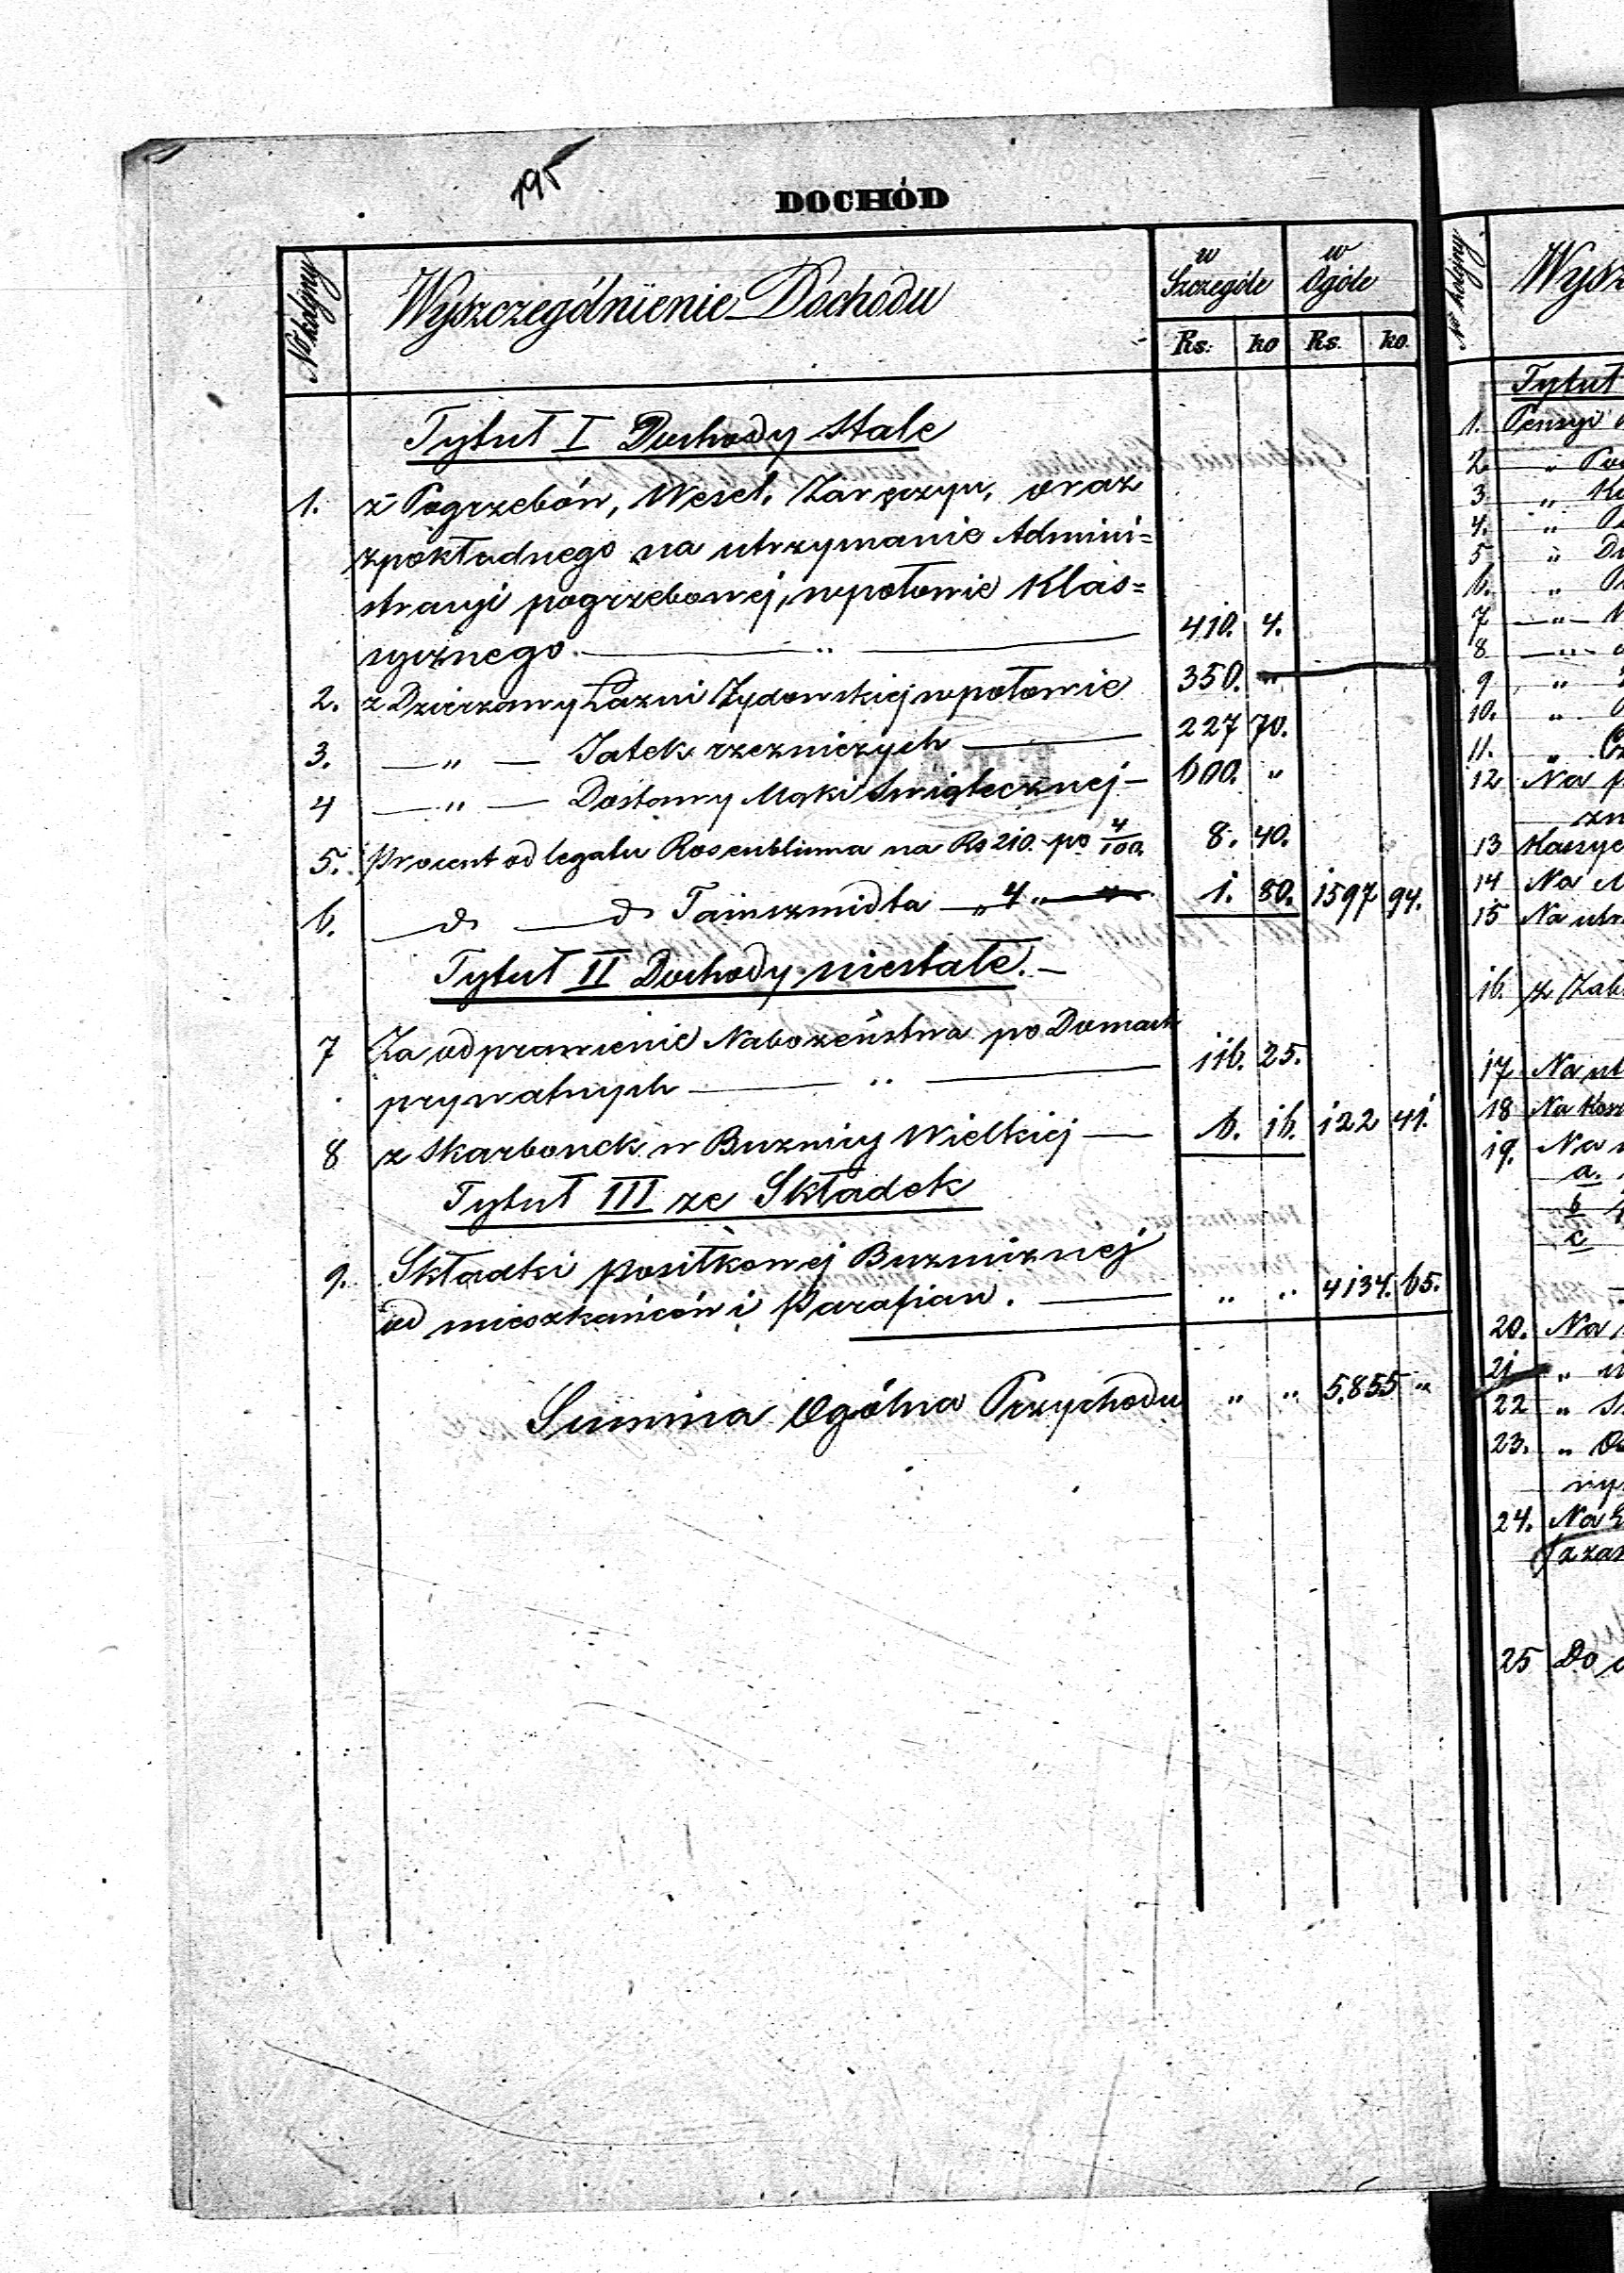 195
DOCHÓD
No kolejny
Wyszczególnienie Dochodu
w Szczególe
w Ogóle
Rs. ko Rs. ko.
Tytuł I Dochody stałe
1. z Pogrzebów, Wesel, Zaręczyn, oraz
z pokładnego na utrzymanie Admini=
stracyi pogrzebowej, wpołowie Klas=
sycznego. — " — 410. 4.
2. z Dzierzawy Łazni Zydowskiej wpołowie 350. "
3. — " — Jatek rzezniczych — 227 70.
4 — " — Dostawy Mąki Swiątecznej — 600. "
5. Procent od legatu Rosenbluma na Rs 210. po 4/100. 8. 40.
6. — do — do Tainszmidta — " 4 " — 1. 80. 1597 94.
Tytuł II Dochody niestałe. —
7 Za odprawienie Nabożeństwa po Domach
prywatnych — " — 116. 25.
8 z Skarbonek w Buznicy Wielkiej — 6. 16. 122 41.
Tytuł III ze Składek
9. Składki posiłkowej Buzniznej
od mieszkańców i Parafian. — " " 4134. 65.
Summa Ogólna Przychodu " " 5,855 "
No kolejny
Tytuł
1. Pensyi
2 "
3. "
4. "
5 "
6. "
7 — " —
8 — " —
9 "
10. "
11. "
12 Na
13
14 Na
15 Na
16. z
17. Na
18 Na
19. Na
a.
b
c
20. Na
21 "
22 "
23. "
24. Na
25 Do